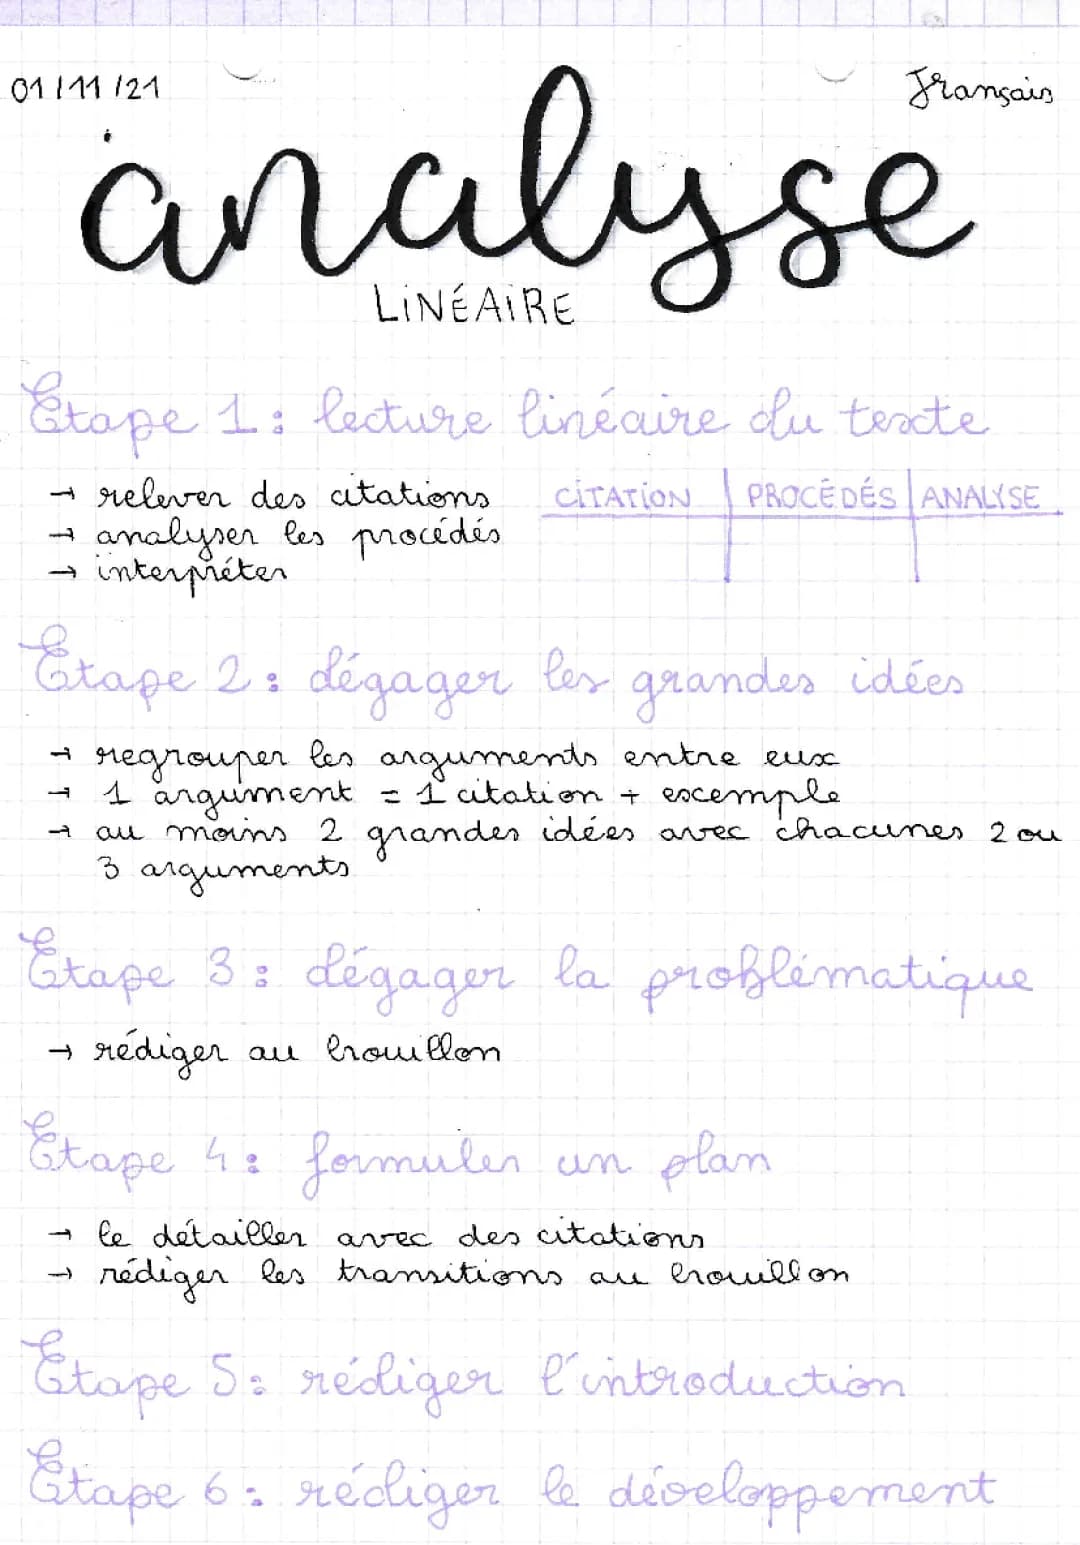 01/11/21 Français
analyse
LINÉAIRE
Étape 1 : lecture linéaire du texte
→ relever des citations CITATION PROCÉDÉS ANALYSE
→ analyser les procédés
→ interpréter
Étape 2 : dégager les grandes idées
→ regrouper les arguments entre eux
→ 1 argument = 1 citation + exemple
→ au moins 2 grandes idées avec chacunes 2 ou
3 arguments
Étape 3 : dégager la problématique
→ rédiger au brouillon
Étape 4 : formuler un plan
→ le détailler avec des citations
→ rédiger les transitions au brouillon
Étape 5 : rédiger l'introduction
Étape 6 : rédiger le développement